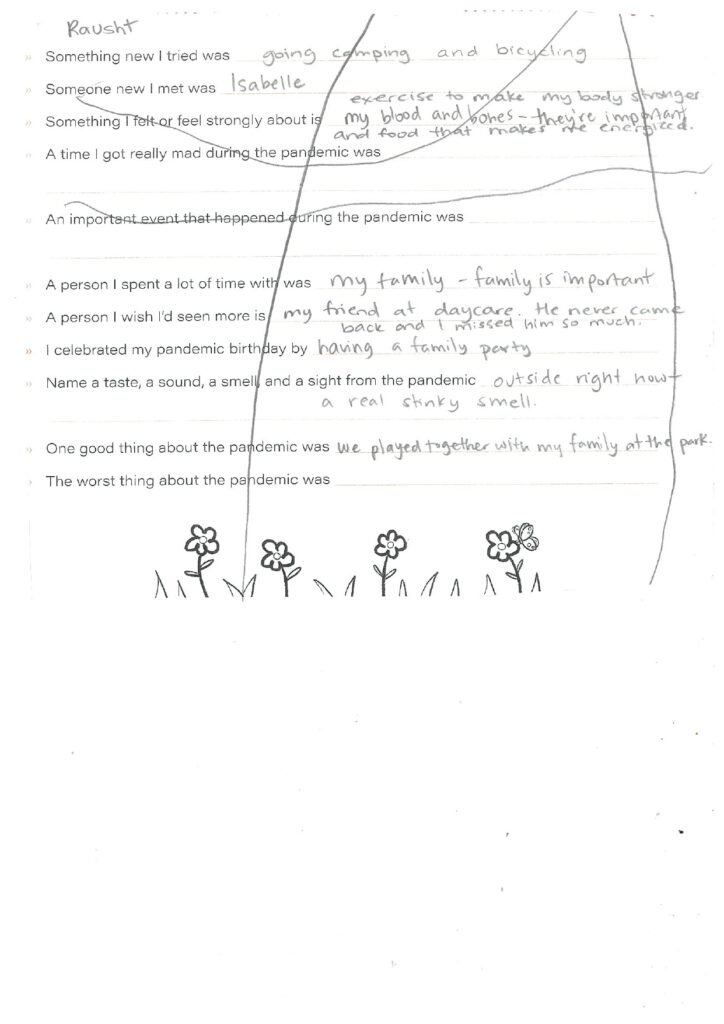 Rausht
» Something new I tried was going camping and bicycling
» Someone new I met was Isabelle
exercise to make my body stronger
» Something I felt or feel strongly about is my blood and bones - they're important,
and food that makes me energized.
» A time I got really mad during the pandemic was
» An important event that happened during the pandemic was
» A person I spent a lot of time with was my family - family is important
» A person I wish I'd seen more is my friend at daycare. He never came
back and I missed him so much.
» I celebrated my pandemic birthday by having a family party
» Name a taste, a sound, a smell, and a sight from the pandemic outside right now -
a real stinky smell.
» One good thing about the pandemic was we played together with my family at the park.
» The worst thing about the pandemic was